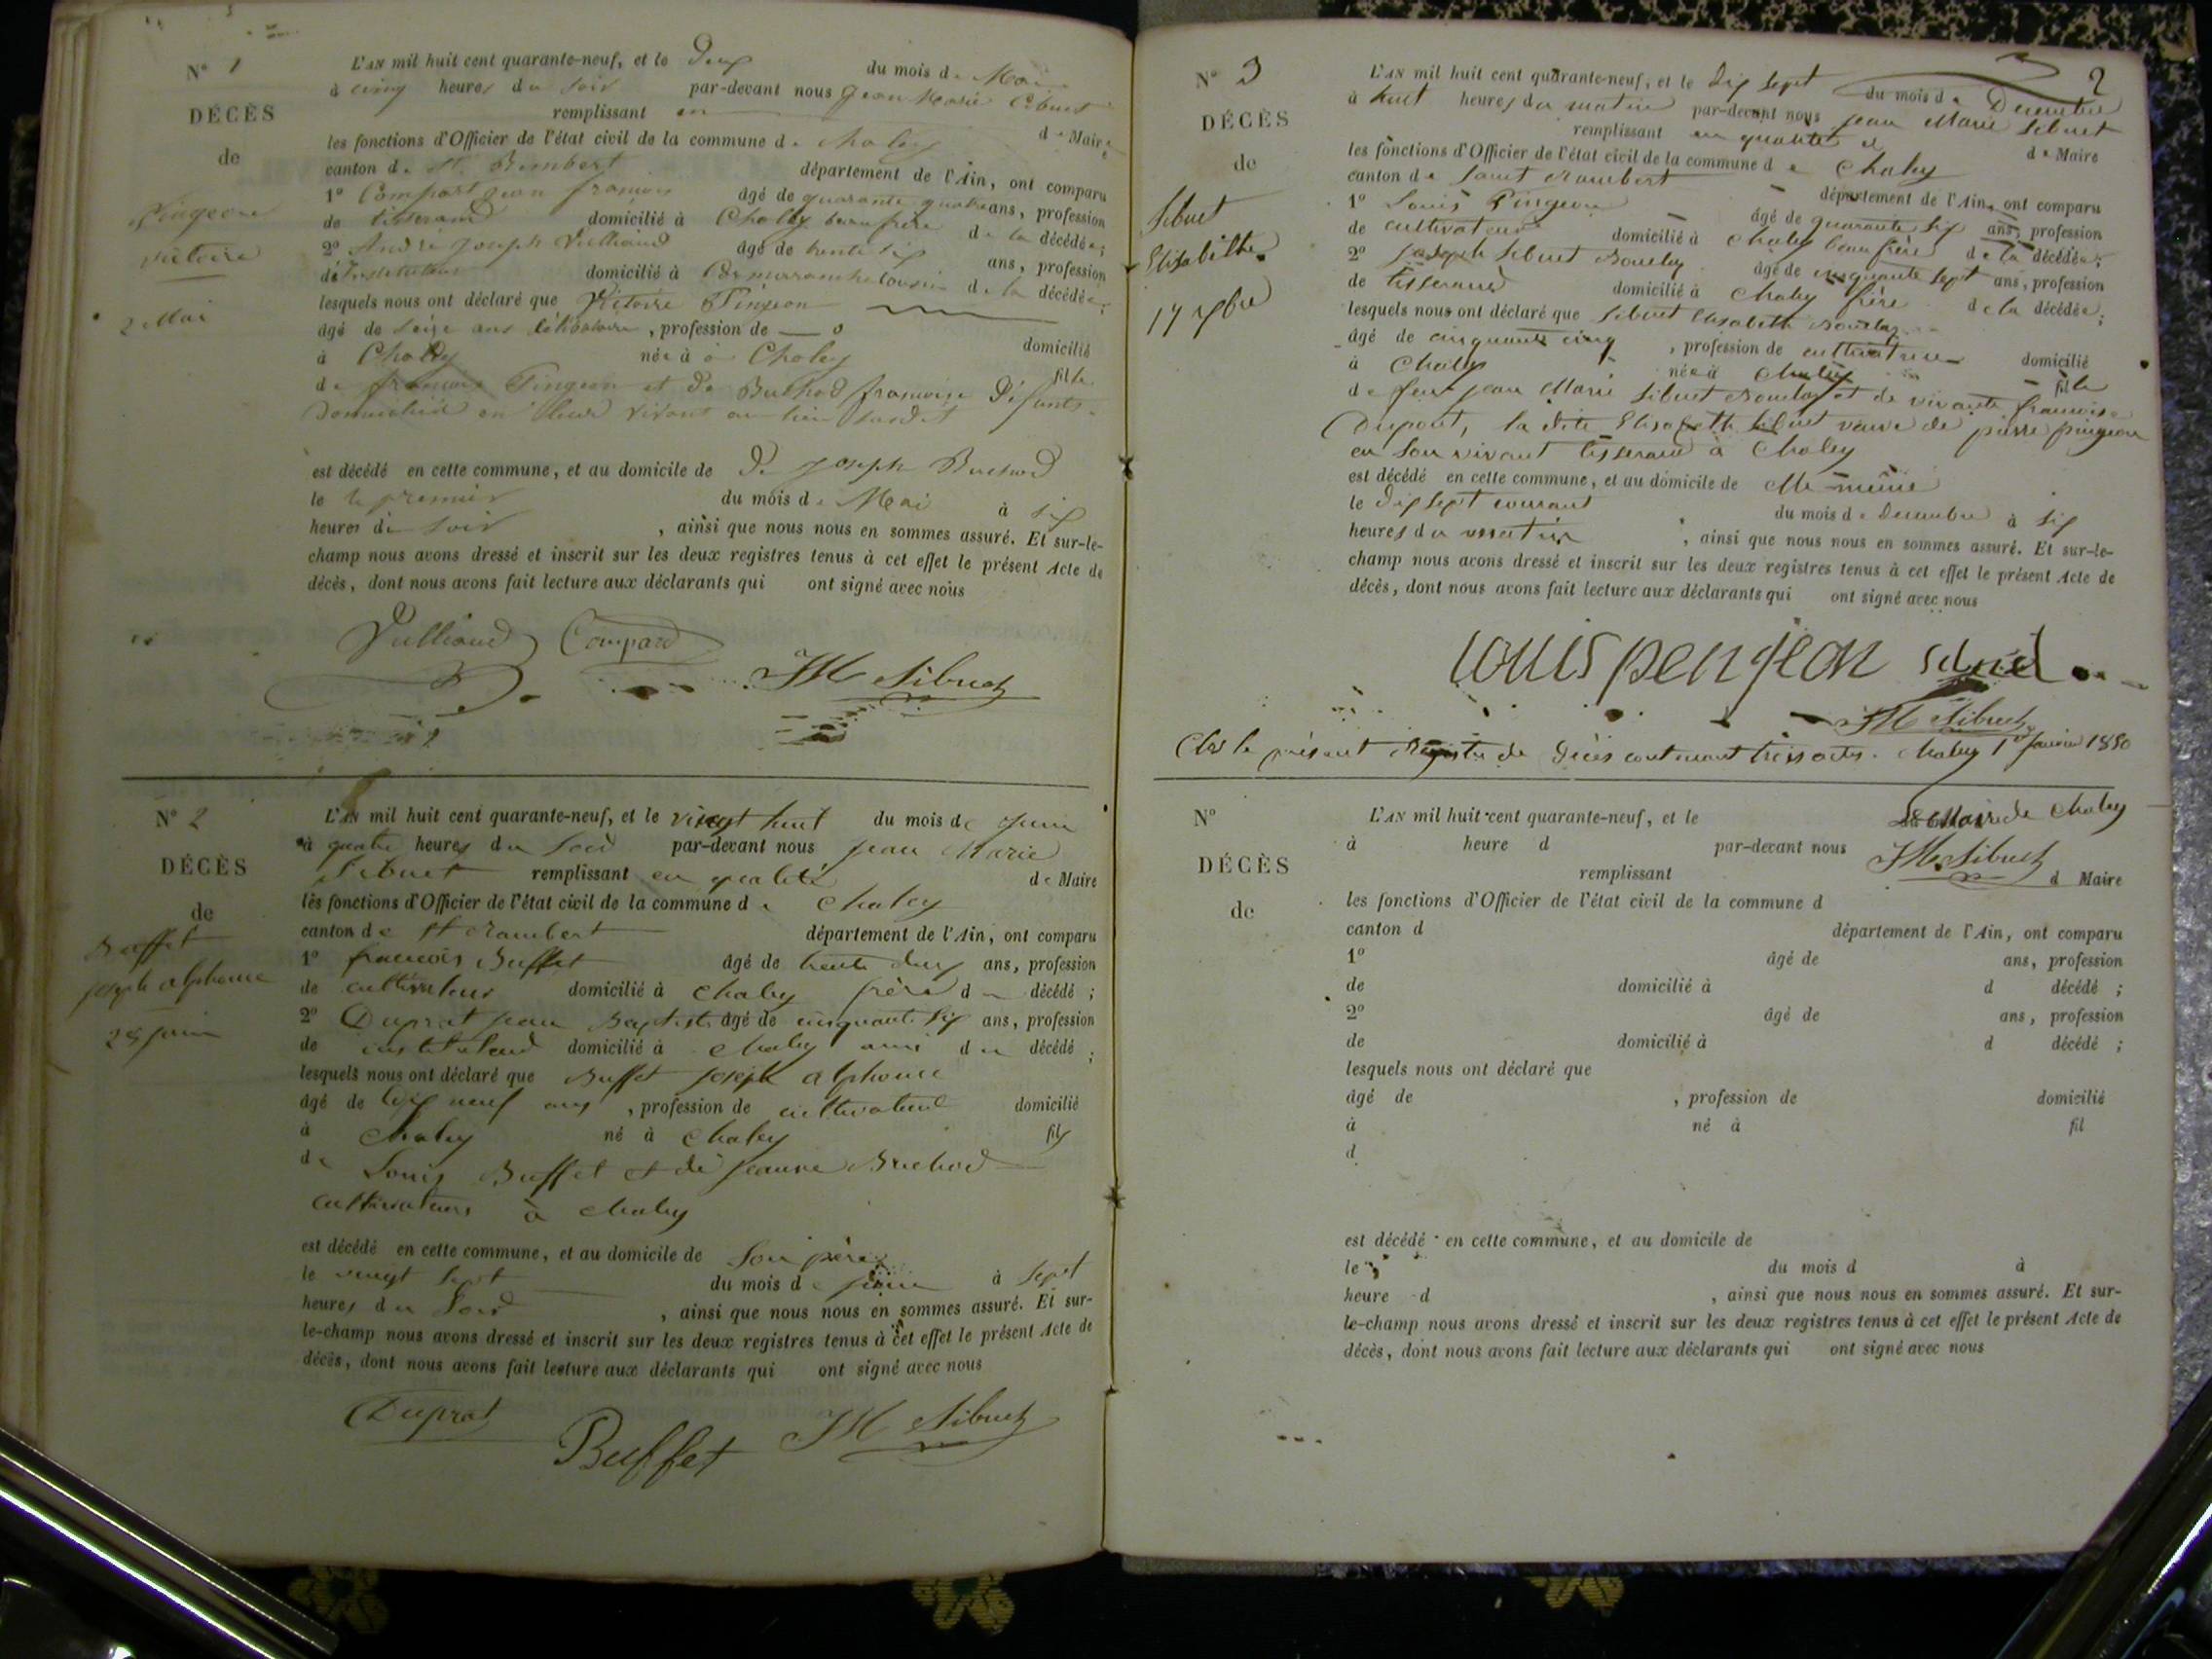 N° 1
DÉCÈS
de
Pingeon
victoire
2 Mai
L'AN mil huit cent quarante-neuf, et le Deux du mois de Mai
à cinq heures du soir par-devant nous Jean Marie Sibuet
remplissant en de Maire
les fonctions d'Officier de l'état civil de la commune de Chaley
canton de St. Rambert département de l'Ain, ont comparu
1° Compart jean françois âgé de quarante quatre ans, profession
de tisserand domicilié à Chaley beau frère de la décédée;
2° André Joseph Julliand âgé de trente six ans, profession
de Instituteur domicilié à cousin de la décédée;
lesquels nous ont déclaré que Victoire Pingeon
âgé de seize ans célibataire, profession de domicilié
à Chaley née à Chaley fille
de françois Pingeon et de Buchod françoise Défunts
Domiciliés en leur vivant au lieu susdit
est décédé en cette commune, et au domicile de De joseph Buchod
le le premier du mois de Mai à six
heures du soir, ainsi que nous nous en sommes assuré. Et sur-le-
champ nous avons dressé et inscrit sur les deux registres tenus à cet effet le présent Acte de
décès, dont nous avons fait lecture aux déclarants qui ont signé avec nous
Julliand Compard
JM Sibuet
N° 2
DÉCÈS
de
Buffet
joseph alphonse
28 juin
L'AN mil huit cent quarante-neuf, et le vingt huit du mois de juin
à quatre heures du soir par-devant nous jean Marie
Sibuet remplissant en qualité de Maire
les fonctions d'Officier de l'état civil de la commune de Chaley
canton de St Rambert département de l'Ain, ont comparu
1° francois Buffet âgé de trente deux ans, profession
de cultivateur domicilié à Chaley frère du décédé;
2° Duprat jean Baptiste âgé de cinquante six ans, profession
de instituteur domicilié à Chaley ami du décédé;
lesquels nous ont déclaré que Buffet joseph alphonse
âgé de dix neuf ans, profession de cultivateur domicilié
à Chaley né à Chaley fils
de Louis Buffet et de jeanne Buchod
cultivateurs à Chaley
est décédé en cette commune, et au domicile de Son père
le vingt sept du mois de juin à sept
heures du Soir, ainsi que nous nous en sommes assuré. Et sur-
le-champ nous avons dressé et inscrit sur les deux registres tenus à cet effet le présent Acte de
décès, dont nous avons fait lecture aux déclarants qui ont signé avec nous
Duprat
Buffet
JM Sibuet
2
N° 3
DÉCÈS
de
Sibuet
Elisabeth
17 xbre
L'AN mil huit cent quarante-neuf, et le Dix sept du mois de Decembre
à huit heures du matin par-devant nous jean Marie Sibuet
remplissant en qualité de Maire
les fonctions d'Officier de l'état civil de la commune de Chaley
canton de Saint Rambert département de l'Ain, ont comparu
1° Louis Pingeon âgé de quarante six ans, profession
de cultivateur domicilié à Chaley beau frère de la décédée;
2° joseph Sibuet Bouclay âgé de cinquante sept ans, profession
de tisserand domicilié à Chaley frère de la décédée;
lesquels nous ont déclaré que Sibuet Elisabeth
âgé de cinquante cinq, profession de cultivatrice domicilié
à Chaley née à Chaley fille
de feu jean Marie Sibuet et de vivante francoise
Dupont, la dite Elisabeth Sibuet veuve de pierre pingeon
en son vivant tisserand à Chaley
est décédé en cette commune, et au domicile de elle même
le dix sept courant du mois de Decembre à six
heures du matin, ainsi que nous nous en sommes assuré. Et sur-le-
champ nous avons dressé et inscrit sur les deux registres tenus à cet effet le présent Acte de
décès, dont nous avons fait lecture aux déclarants qui ont signé avec nous
Louis penjeon
JM Sibuet
Clos le présent Registre de Décès contenant trois actes. Chaley 1er Janvier 1850
Le Maire de Chaley
JM Sibuet
N°
DÉCÈS
de
L'AN mil huit cent quarante-neuf, et le
à heure d par-devant nous
remplissant d Maire
les fonctions d'Officier de l'état civil de la commune d
canton d département de l'Ain, ont comparu
1° âgé de ans, profession
de domicilié à d décédé ;
2° âgé de ans, profession
de domicilié à d décédé ;
lesquels nous ont déclaré que
âgé de , profession de domicilié
à né à fil
d
est décédé en cette commune, et au domicile de
le du mois d à
heure d , ainsi que nous nous en sommes assuré. Et sur-
le-champ nous avons dressé et inscrit sur les deux registres tenus à cet effet le présent Acte de
décès, dont nous avons fait lecture aux déclarants qui ont signé avec nous